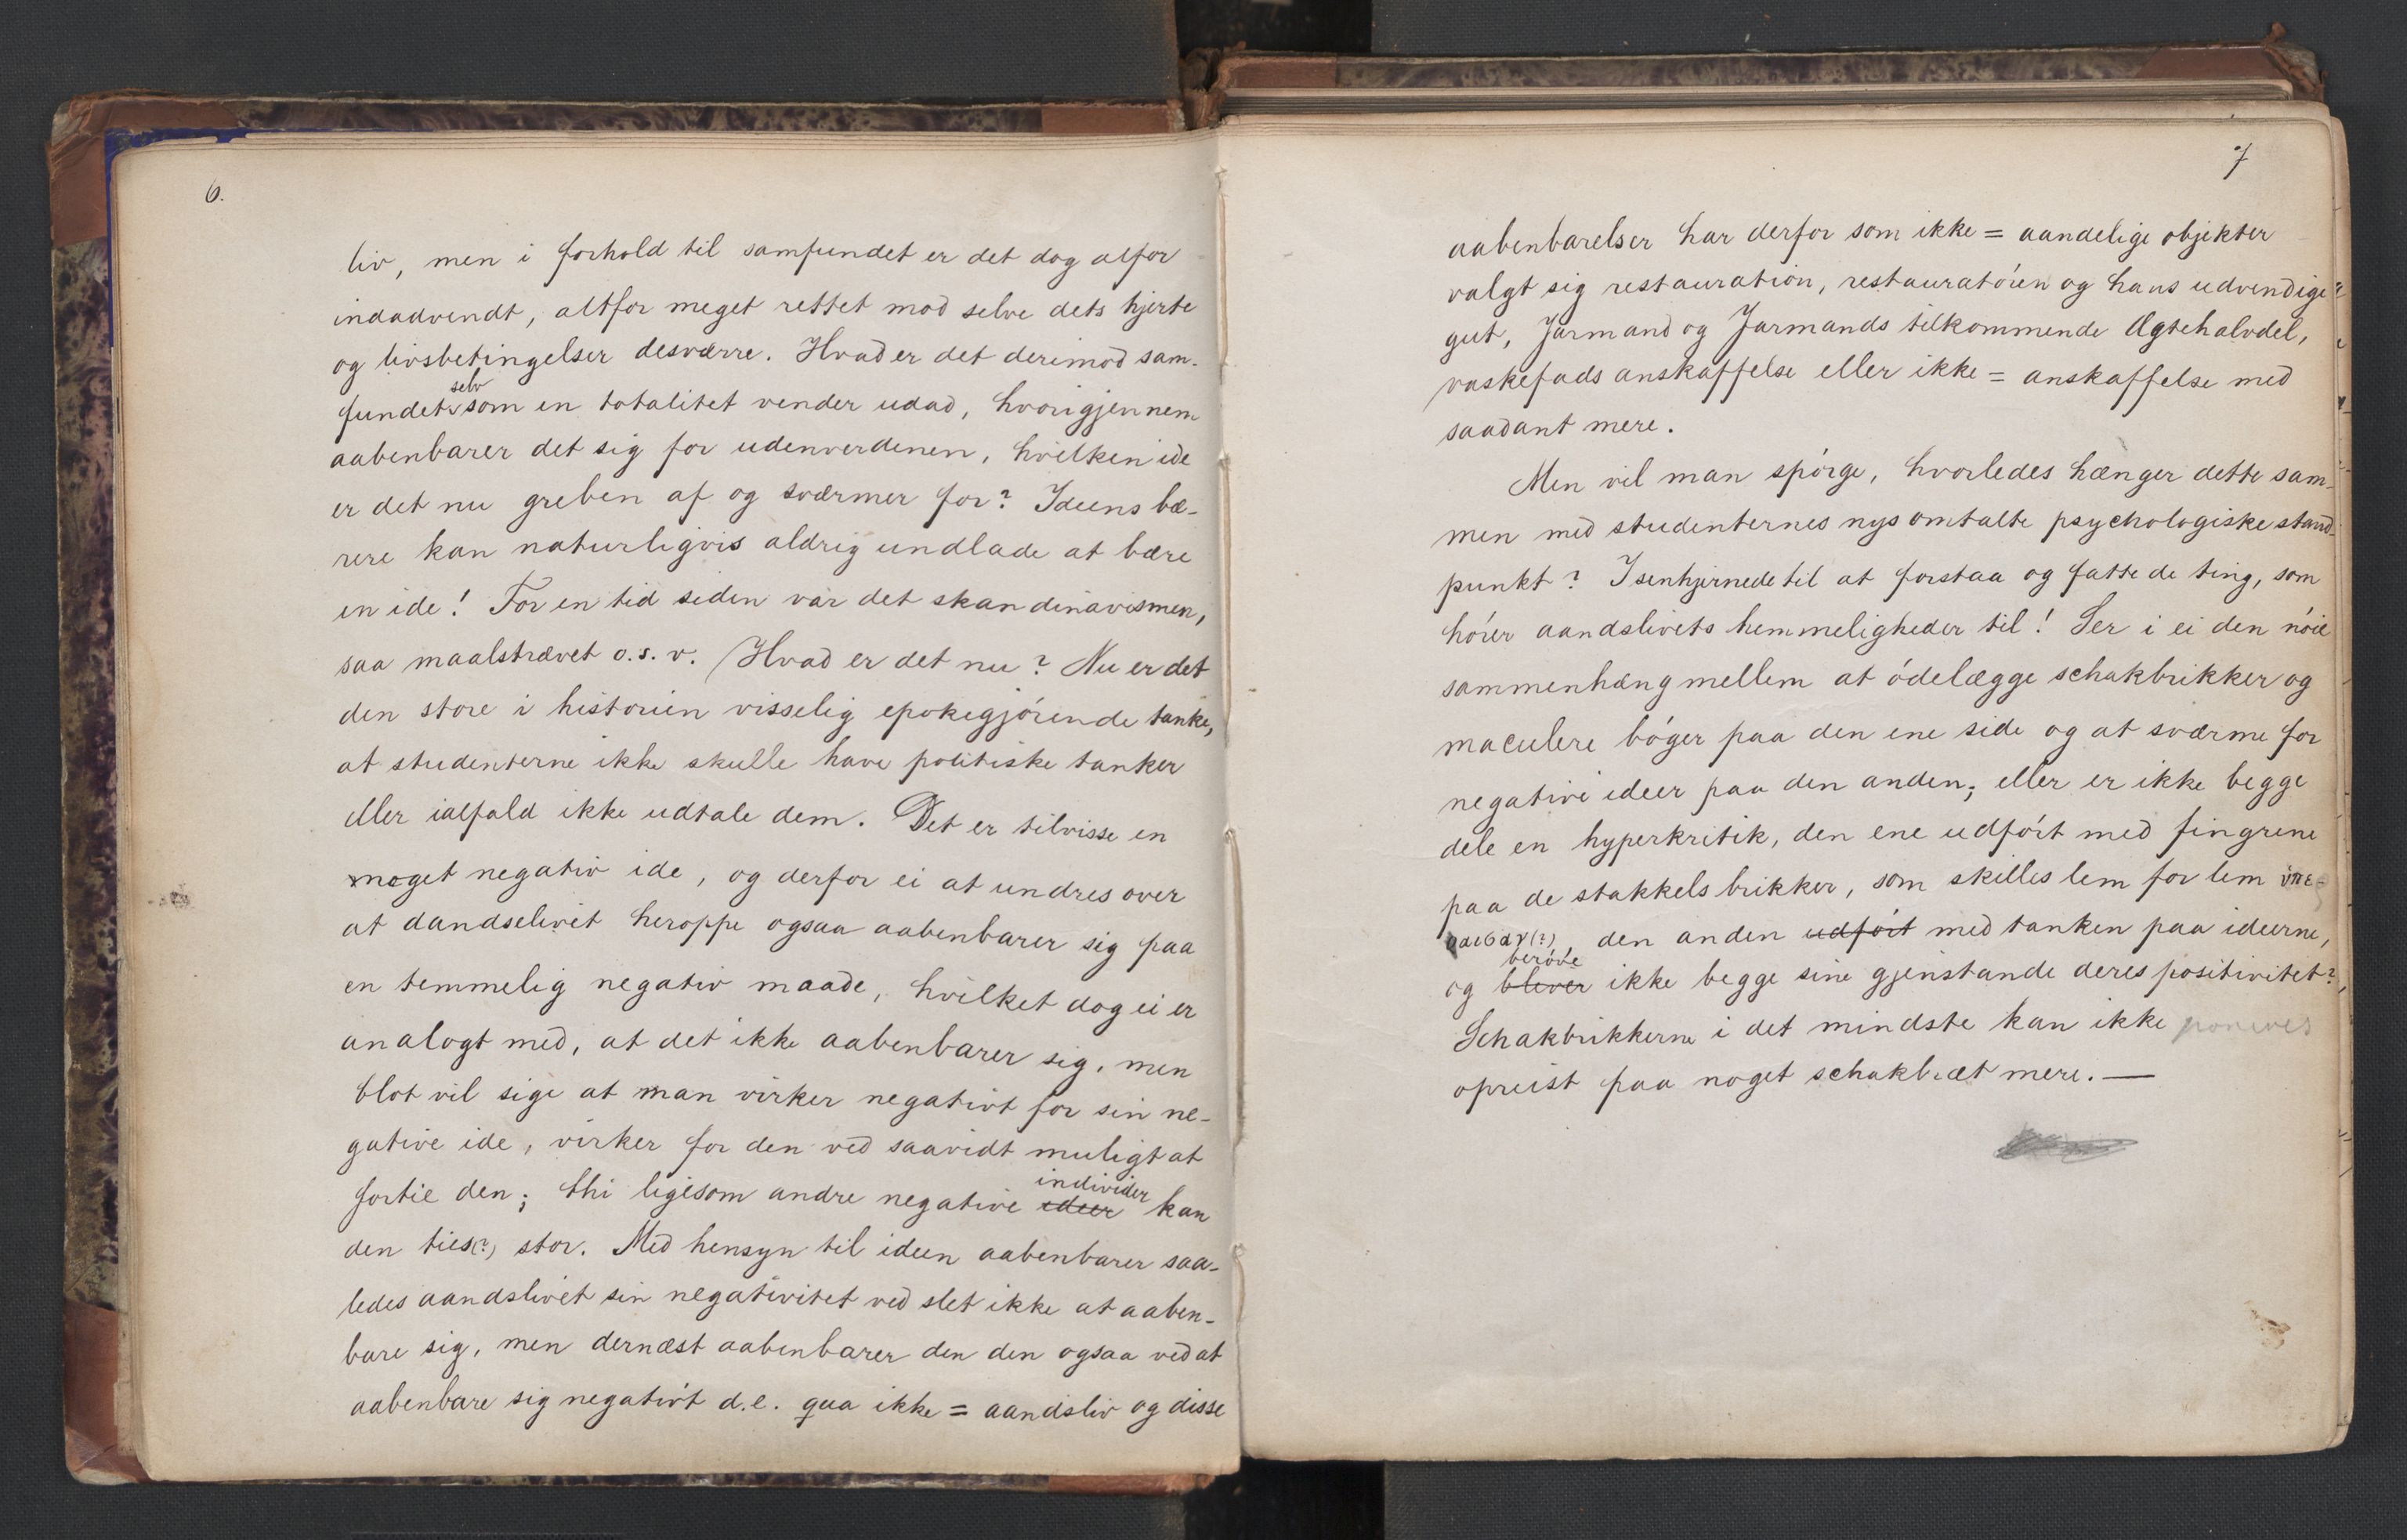 6.
liv, men i forhold til samfundet er det dog alfor
indadvendt, altfor meget rettet mod selve dets hjerte
og livsbetingelser desværre. Hvad er det derimod sam-
selv
fundet som en totalitet vender udad, hvorigjennem
aabenbarer det sig for udenverdenen, hvilken ide
er det nu greben af og sværmer for? Ideens bæ-
rere kan naturligvis aldrig undlade at bære
en ide! For en tid siden var det skandinavismen,
saa maalstrævet o.s.v. Hvad er det nu? Nu er det
den store i historien visselig epokegjórende tanke,
at studenterne ikke skulle have politiske tanker
eller ialfald ikke udtale dem. Det er tilvisse en
meget negativ ide, og derfor ei at undres over
at aandslivet heroppe ogsaa aabenbarer sig paa
en temmelig negativ maade, hvilket dog ei er
analogt med, at det ikke aabenbarer sig, men
blot vil sige at man virker negativt for sin ne-
gative ide, virker for den ved saavidt muligt at
individer
fortie den; thi ligesom andre negative ideer kan
den ties(?) stor. Med hensyn til ideen aabenbarer saa-
ledes aandslivet sin negativitet ved slet ikke at aaben-
bare sig, men dernæst aabenbarer den den ogsaa ved at
aabenbare sig negativt d.e. qua ikke = aandsliv og disse
7
aabenbarelser har derfor som ikke = aandelige objekter
valgt sig restauration, restauratóren og hans udvendige
gut, Jarmand og Jarmands tilkommende Ægtehalvdel,
vaskefads anskaffelse eller ikke = anskaffelse med
saadant mere.
Men vil man spórge, hvorledes hænger dette sam-
men med studenternes nys omtalte psychologiske stand-
punkt? I senhjernede til at forstaa og fatte de ting, som
hórer aandslivets hemmeligheder til! Ser i ei den nóie
sammenhæng mellem at ódelægge schakbrikker og
maculere bóger paa den ene side og at sværme for
negative ideer paa den anden; eller er ikke begge
dele en hyperkritik, den ene udfórt med fingrene
paa de stakkels brikker, som skilles lem for lem
(?), den anden udfórt med tanken paa ideerne,
beróve
og blever ikke begge sine gjenstande deres positivitet?
Schakbrikkerne i det mindste kan ikke poneres
opreist paa noget schakbræt mere. —